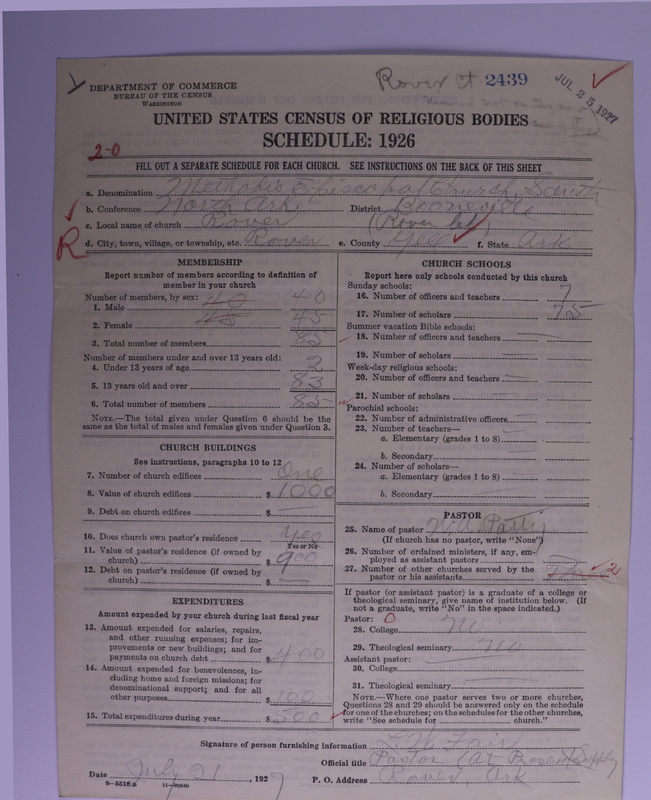 DEPARTMENT OF COMMERCE
BUREAU OF THE CENSUS
WASHINGTON
Rover Ct 2439
JUL 25 1927
UNITED STATES CENSUS OF RELIGIOUS BODIES
SCHEDULE: 1926
2-0
FILL OUT A SEPARATE SCHEDULE FOR EACH CHURCH. SEE INSTRUCTIONS ON THE BACK OF THIS SHEET
a. Denomination Methodist Episcopal Church, South
b. Conference North Ark. District Booneville
c. Local name of church Rover
R
d. City, town, village, or township, etc. Rover e. County Yell f. State Ark
MEMBERSHIP
Report number of members according to definition of
member in your church
Number of members, by sex:
1. Male 40 40
2. Female 45 45
3. Total number of members 85
Number of members under and over 13 years old:
4. Under 13 years of age 2
5. 13 years old and over 83
6. Total number of members 85
NOTE.—The total given under Question 6 should be the
same as the total of males and females given under Question 3.
CHURCH BUILDINGS
See instructions, paragraphs 10 to 12
7. Number of church edifices One
8. Value of church edifices $ 1000
9. Debt on church edifices $ —
10. Does church own pastor's residence Yes
Yes or No
11. Value of pastor's residence (if owned by
church) $ 900
12. Debt on pastor's residence (if owned by
church) $ —
EXPENDITURES
Amount expended by your church during last fiscal year
13. Amount expended for salaries, repairs,
and other running expenses; for im-
provements or new buildings; and for
payments on church debt $ 400
14. Amount expended for benevolences, in-
cluding home and foreign missions; for
denominational support; and for all
other purposes $ 100
15. Total expenditures during year $ 500
CHURCH SCHOOLS
Report here only schools conducted by this church
Sunday schools:
16. Number of officers and teachers 7
17. Number of scholars 75
Summer vacation Bible schools:
18. Number of officers and teachers
19. Number of scholars
Week-day religious schools:
20. Number of officers and teachers
21. Number of scholars
Parochial schools:
22. Number of administrative officers
23. Number of teachers—
a. Elementary (grades 1 to 8)
b. Secondary
24. Number of scholars—
a. Elementary (grades 1 to 8)
b. Secondary
PASTOR
25. Name of pastor
(If church has no pastor, write "None")
26. Number of ordained ministers, if any, em-
ployed as assistant pastors
27. Number of other churches served by the
pastor or his assistants 2
If pastor (or assistant pastor) is a graduate of a college or
theological seminary, give name of institution below. (If
not a graduate, write "No" in the space indicated.)
Pastor: 0
28. College no
29. Theological seminary no
Assistant pastor:
30. College
31. Theological seminary
NOTE.—Where one pastor serves two or more churches,
Questions 28 and 29 should be answered only on the schedule
for one of the churches; on the schedules for the other churches,
write "See schedule for church."
Signature of person furnishing information
Official title Pastor (at Present Supply
Date July 21, 1927 P. O. Address Rover, Ark